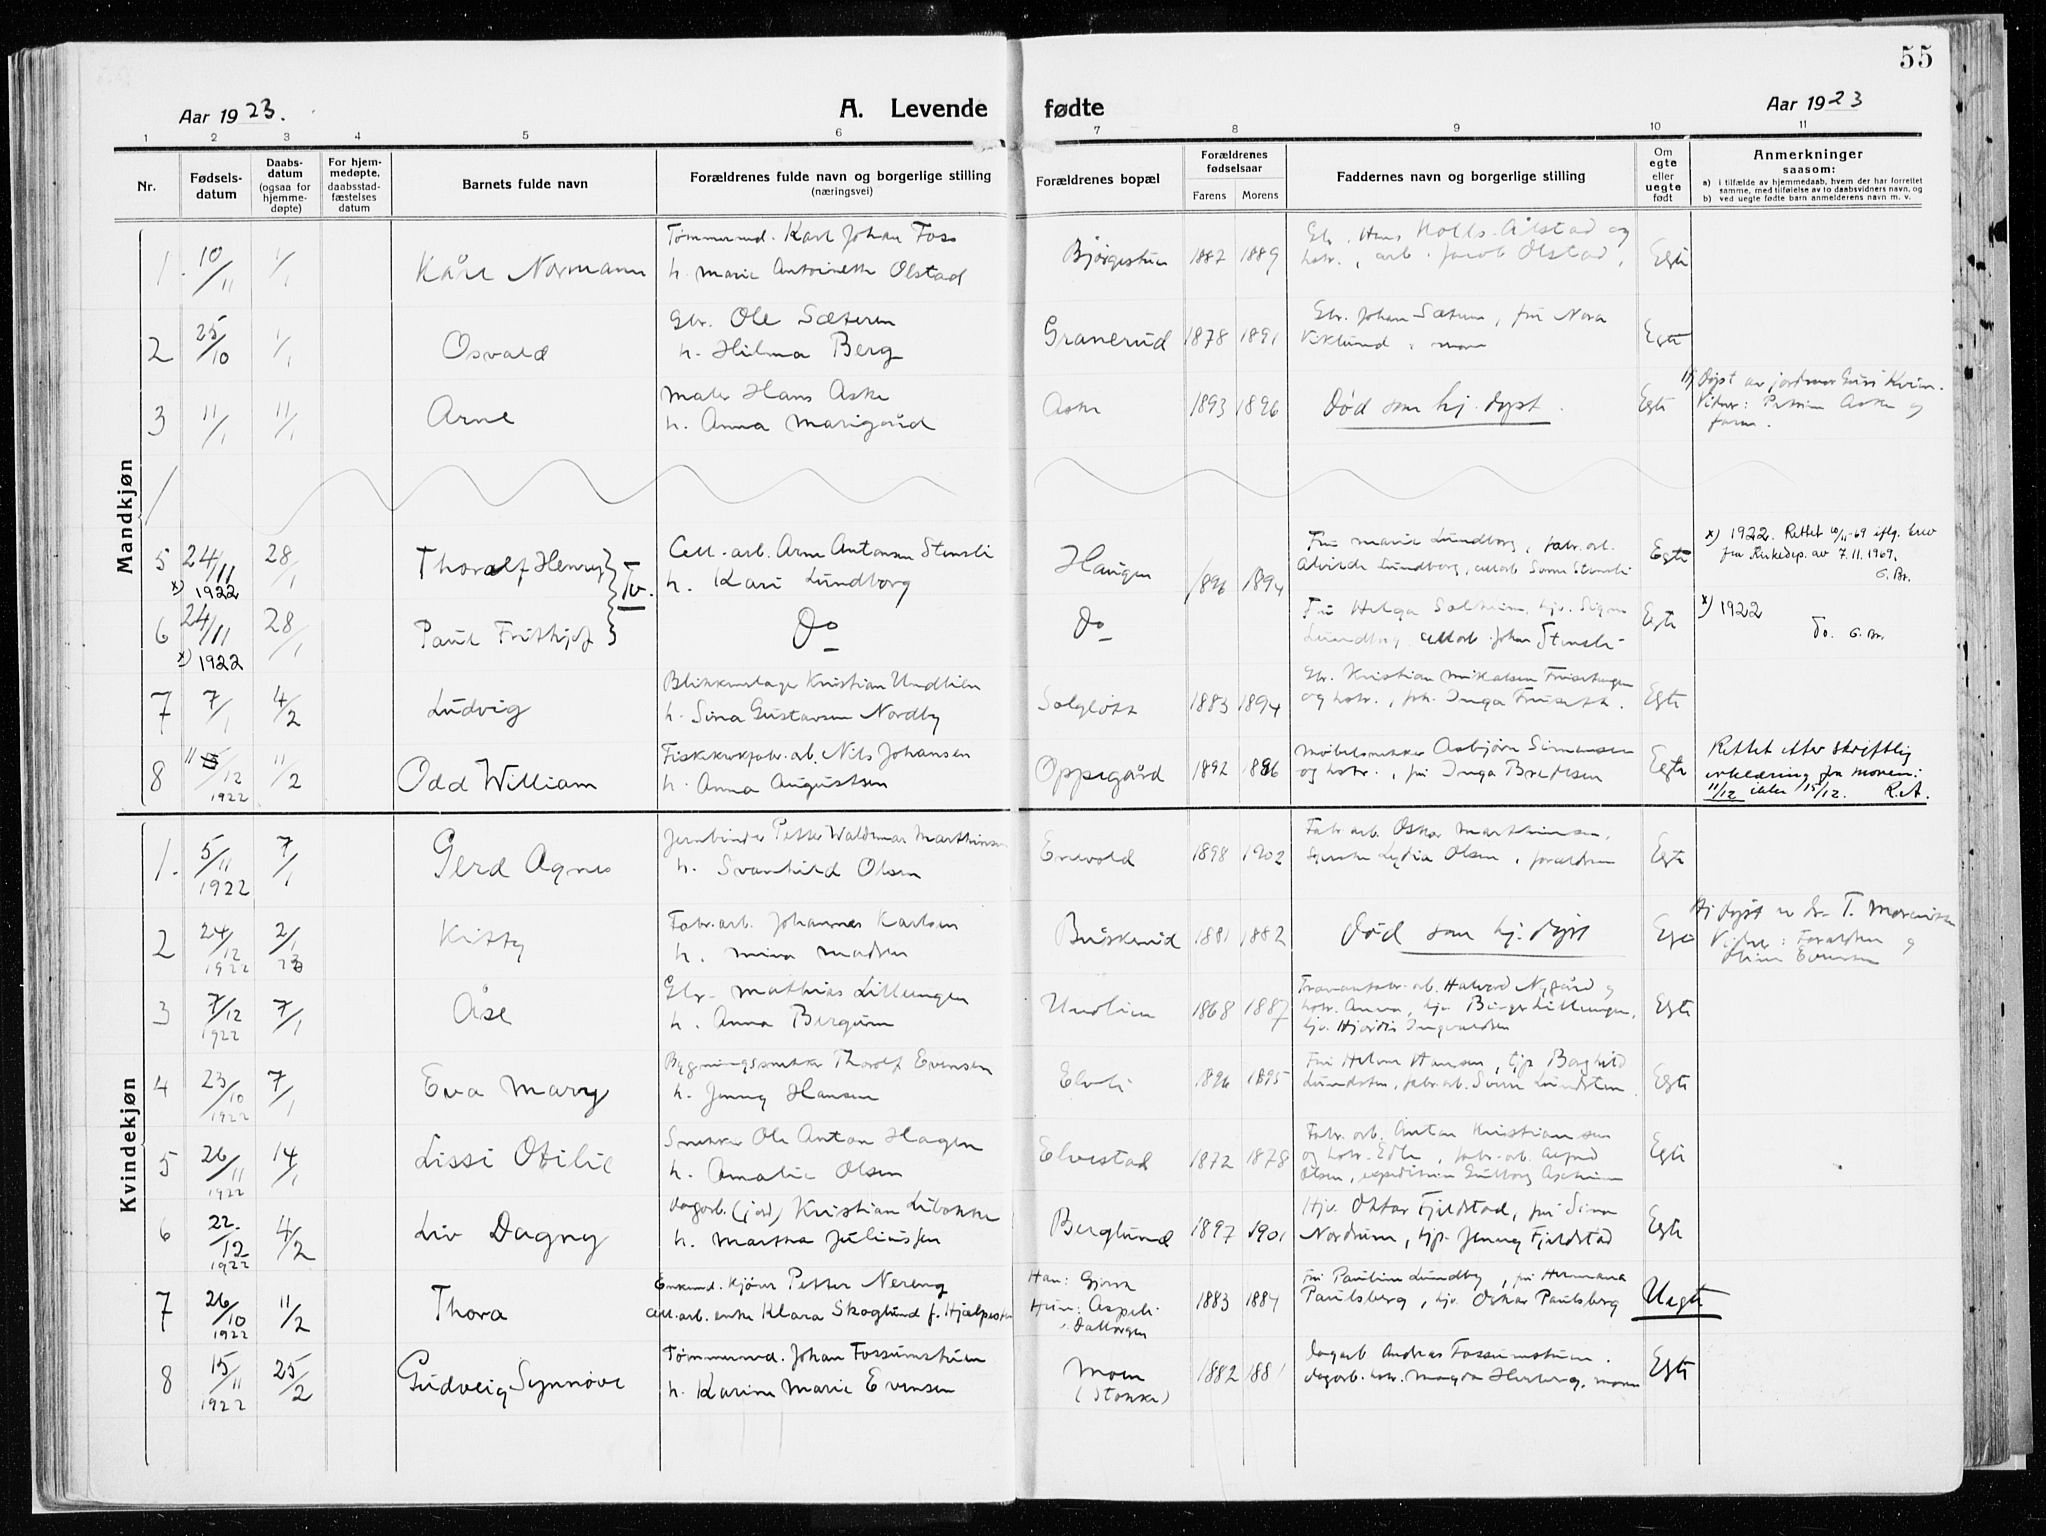 55
Aar 1923.
A. Levende fødte
Aar 1923
1 2 3 4 5 6 7 8 9 10 11
Nr.
Fødsels-
datum
Daabs-
datum
(ogsaa for
hjemme-
døpte)
For hjem-
medøpte,
daabsstad-
fæstelses
datum
Barnets fulde navn
Forældrenes fulde navn og borgerlige stilling
(næringsvei)
Forældrenes bopæl
Forældrenes
fødselsaar
Farens Morens
Faddernes navn og borgerlige stilling
Om
egte
eller
uegte
født
Anmerkninger
saasom:
a) i tilfælde av hjemmedaab, hvem der har forrettet
samme, med tilføielse av to daabsvidners navn, og
b) ved uegte fødte barn anmelderens navn m. v.
Mandkjøn
1. 10/11 1/1 Kåre Normann
Tømmermd. Karl Johan Foss
h. Marie Antoinette Olstad
1887 1889
arb. Jacob Olstad, Egte
2 25/10 1/1 Osvald
Gbr. Ole Sæteren
h. Hilma Berg
Granerud 1878 1891
Gbr. Johan Sæteren, fru Nora
Viklund, moren
Egte
3 11/1 11/1 Arne
Maler Hans Aske
h. Anna Marigård
Aske 1893 1896
Død som hj. døpt.
Egte
Hj. døpt av jordmor Guri Kvien.
Vidner: Petrine Aske og
faren.
5 24/11 x) 1922 28/1 Thoralf Henry } Tv.
Cell.-arb. Arne Antonsen Stensli
h. Kari Lundborg
Haugen 1896 1894
Fru Marie Lundborg, fabr. arb.
Egte
x) 1922. Rettet 10/11-69 iflg. brev
fra Kirkedep. av 7.11.1969.
G. Br.
6 24/11 x) 1922 28/1 Paul Frithjof }
Do
Do
Egte
x) 1922
Do. G. Br.
7 7/1 4/2 Ludvig
Blikkenslager Kristian Undlien
h. Sina Gustavsen Nordby
Solgløtt 1883 1894
Egte
8 11/12 1922 11/2 Odd William
Fiskekrokfabr. arb. Nils Johansen
h. Anna Augustsen
Oppegård 1892 1886
Møbelsnekker Asbjørn Simensen
og hstr., fru Inga Bredesen
Egte
Rettet etter skriftlig
erklæring fra moren:
11/12 ikke 15/12. R.A.
Kvindekjøn
1. 5/11 1922 7/1 Gerd Agnes
Jernbinder Petter Waldemar Marthinsen
h. Svanhild Olsen
Enevold 1898 1902
Fabr. arb. Oskar Marthinsen,
Lydia Olsen, forældrene
Egte
2 24/12 1922 2/1 23 Kitty
Fabr. arb. Johannes Karlsen
h. Mina Madsen
Buskerud 1881 1882
Død som hj. døpt
Egte
Vidner: Forældrene og
Evensen
3 7/12 1922 7/1 Åse
Gbr. Mathias Lillengen
h. Anna Bergum
Undlien 1868 1887
Halvord Nygård og
hstr. Anna, hjv. Birger Lillengen,
hjv. Hjørdis Ingvaldsen
Egte
4 23/10 1922 7/1 Eva Mary
Bygningssnekker Thoralf Evensen
h. Jenny Hansen
Elvli 1896 1895
Fru Helene Hansen, tjp. Borghild
Lundsten, fabr. arb. Sven Lundsten.
Egte
5 26/11 1922 14/1 Lissi Otilie
Snekker Ole Anton Hagen
h. Amalie Olsen
Elvestad 1872 1878
Fabr. arb. Anton Kristiansen
og hstr. Edle, fabr. arb. Alfred
Olsen, expeditrice Gulborg Ascheim
Egte
6 22/12 1922 4/2 Liv Dagny
Dagarb. (jord) Kristian Libakke
h. Martha Juliussen
Berglund 1897 1901
Hjv. Oskar Fjeldstad, fru Sina
Nordrum, tjp. Jenny Fjeldstad
Egte
7 26/10 1922 11/2 Thora
Enkemd. kjører Petter Nereng
cell. arb. enke Klara Skoglund f. Hjelpesten
Han: Gjøvik
Hun: Aspeli
Dalborgen
1883 1884
Fru Pauline Lundby, fru Hermana
Paulsberg, hjv. Oskar Paulsberg
Uegte
8 15/11 1922 25/2 Gudveig Synnøve
Tømmermd. Johan Fossumstuen
h. Karine Marie Evensen
Moen
(Stokke)
1882 1881
Dagarb. Andreas Fossumstuen.
dagarb. hstr. Magda Henberg, moren
Egte